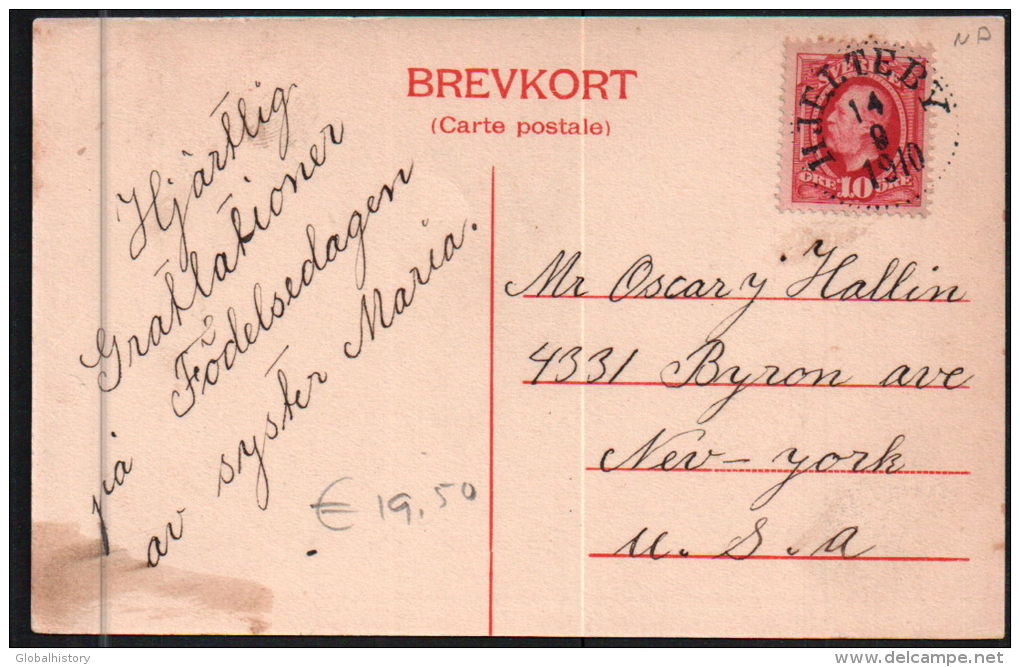 BREVKORT
(Carte postale)
Hjärtlig
Gratulationer
på Födelsedagen
av syster Maria.
€ 19,50
ND
HJELTEBY
14
8
1910
ÖRE 10 ÖRE
Mr Oscar y Hallin
4331 Byron ave
Nev-york
u. S. a
Globalhistory
delcampe.net